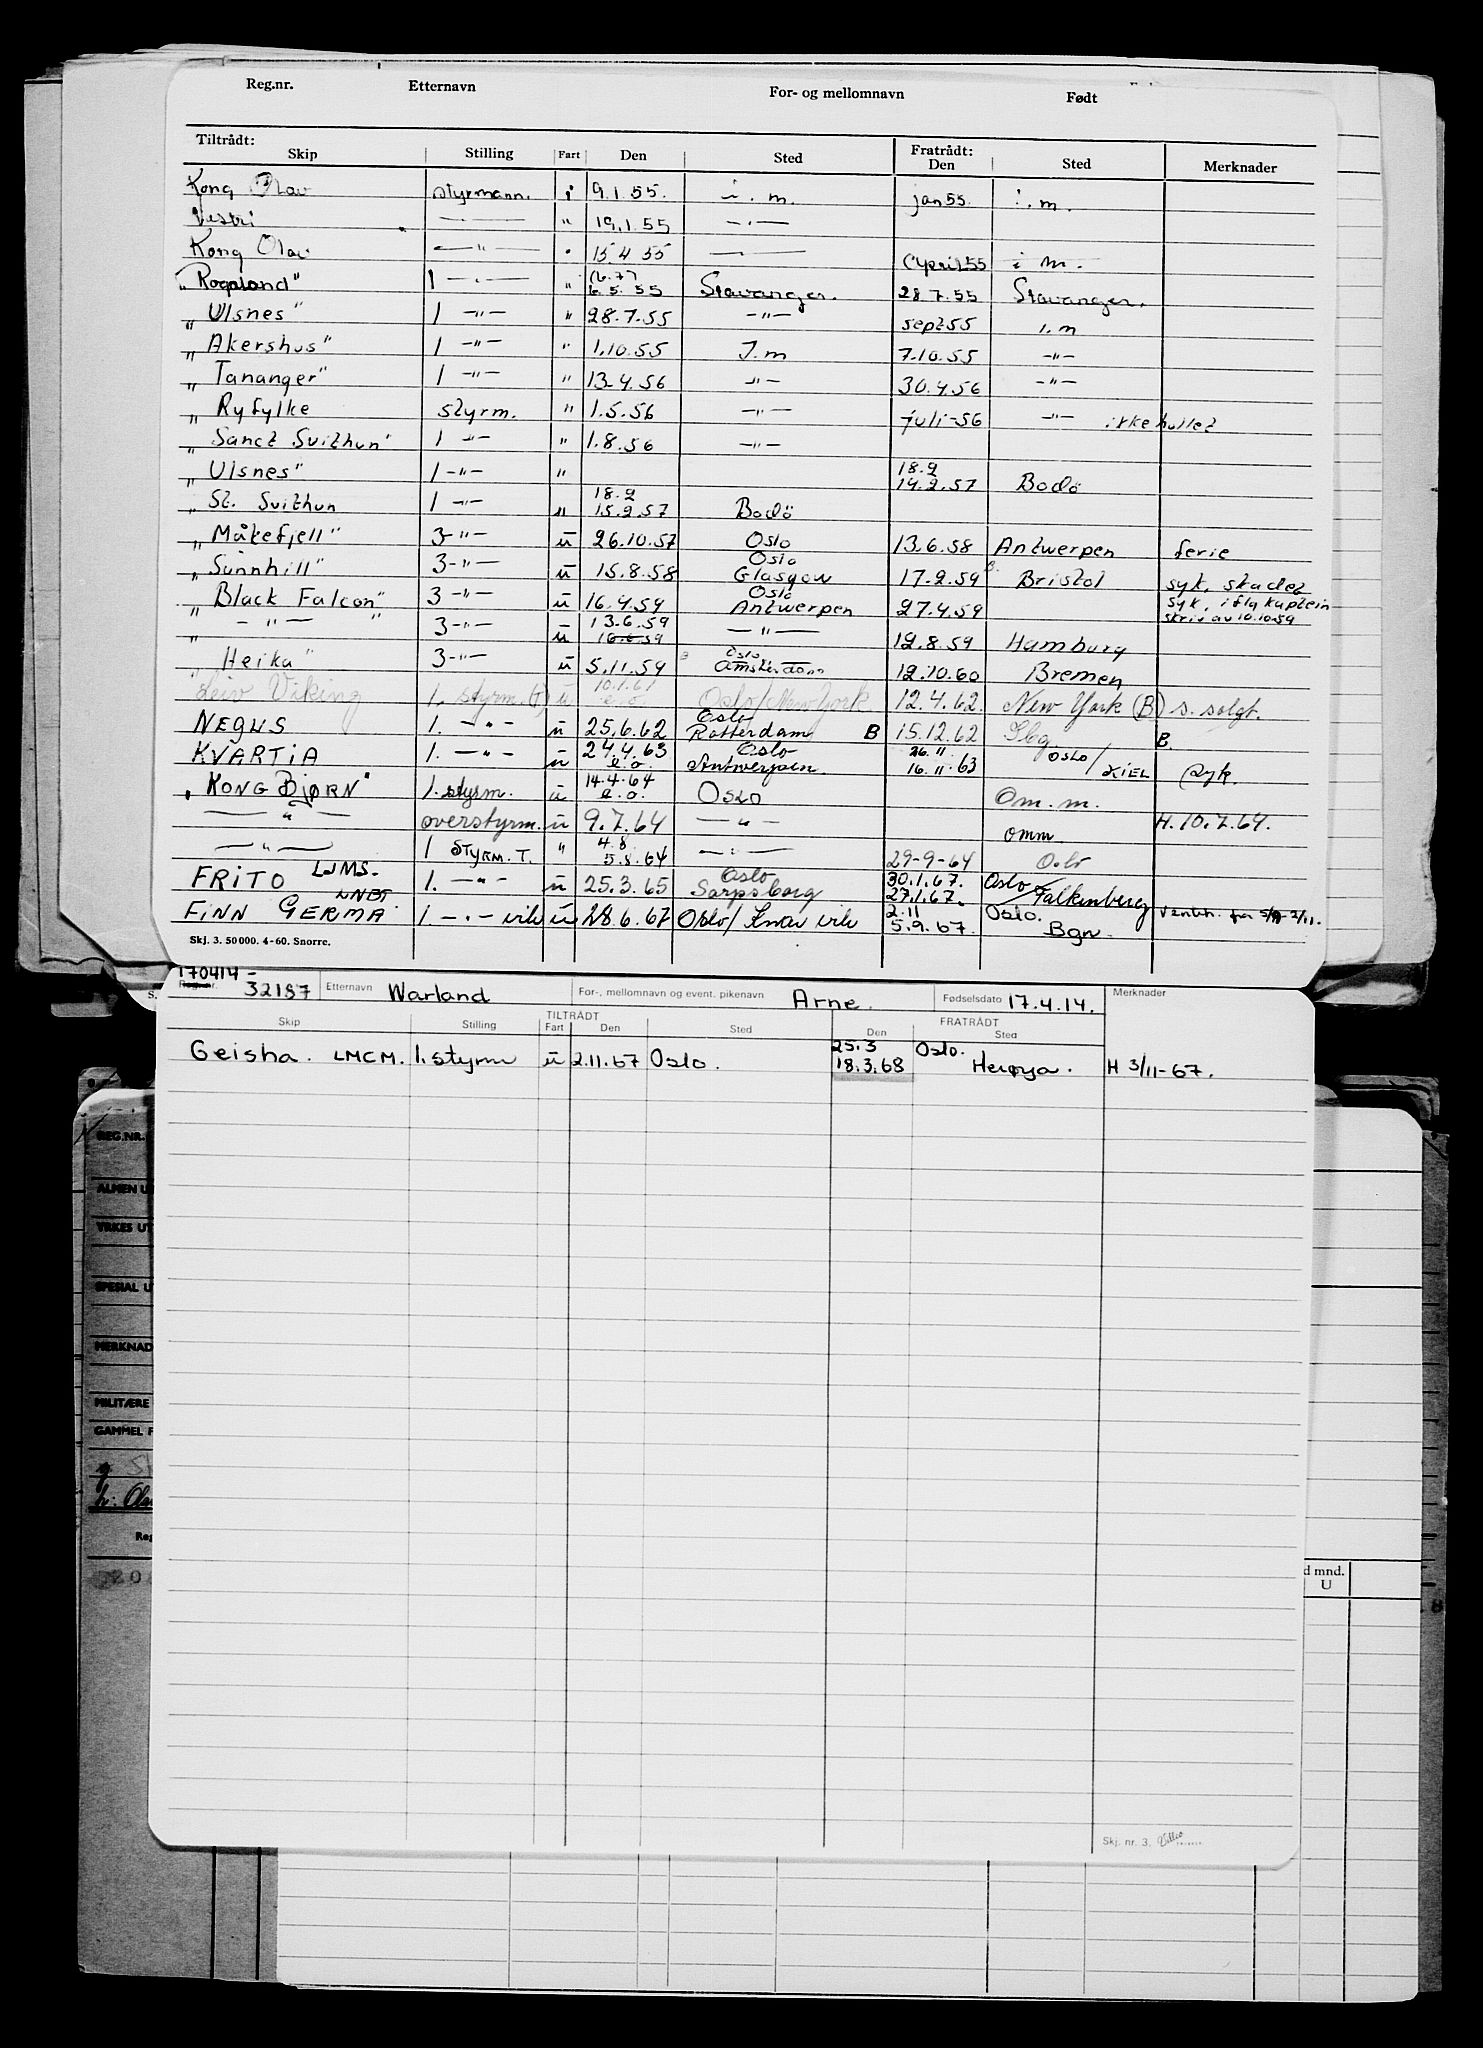 Reg.nr. Etternavn For- og mellomnavn Født
Tiltrådt: Fratrådt:
Skip Stilling Fart Den Sted Den Sted Merknader
Kong Olav styrmann. i 9.1.55. i.m. jan55. i.m.
Vestri —·— " 19.1.55 —·—
Kong Olav —"— " 15.4.55 —— April55 i m.
"Rogaland" 1 —·— " 6.5.55 Stavanger. 28.7.55 Stavanger.
"Ulsnes" 1 —"— " 28.7.55 —"— sept55 i.m
"Akershus" 1 —"— " 1.10.55 I.m 7.10.55 —"—
"Tananger" 1 —"— " 13.4.56 —"— 30.4.56 —"—
"Ryfylke styrm. " 1.5.56 —"— juli-56 —"—
"Sanct Svithun" 1 —"— " 1.8.56 —"—
"Ulsnes" 1 —"— " 18.2 14.2.57 Bodö
"St. Svithun 1 —"— " 18.2 15.2.57 Bodö
"Måkefjell" 3 —"— u 26.10.57 Oslo 13.6.58 Antwerpen ferie
"Sunnhill" 3 —"— u 15.8.58 Oslo Glasgow 17.2.59 Bristol syk, skadet
"Black Falcon" 3 —"— u 16.4.59 Oslo Antwerpen 27.4.59 syk, iflg kaptein skriv av 10.10.59
" —"— " 3 —"— u 13.6.59 16.6.59 —"— 12.8.59 Hamburg
"Heika" 3 —"— u 5.11.59 Oslo Amsterdam 12.10.60 Bremen
Leiv Viking 1. styrm. (T) u 10.1.61 e.o Oslo/New York 12.4.62. New York (B) s. solgt.
NEGUS 1. —"— u 25.6.62 Oslo Rotterdam B 15.12.62 B
KVARTIA 1. —"— u 24.4.63 e.o. Oslo Antwerpen. 26.11 16.11.63 OSLO/KIEL Syk.
"KONG BJØRN" 1. styrm. u 14.4.64 e.o. OSLO Om.m.
—"— overstyrm. u 9.7.64 —"— omm H.10.7.64.
—"— 1 STYRM. T. " 4.8 5.8.64 —"— 29-9-64 Oslo
FRITO LJMS. 1. —"— u 25.3.65 Oslo Sarpsborg 30.1.67. 27.1.67. Oslo/Falkenberg
FINN GERMA LNBT 1 —"— u 28.6.67 Oslo/ 2.11 5.9.67. Oslo. Bgn.
Skj. 3. 50000. 4-60. Snorre.
170414-
Reg.nr. 32187 Etternavn Warland For-, mellomnavn og event. pikenavn Arne. Fødselsdato 17.4.14. Merknader
TILTRÅDT FRATRÅDT
Skip Stilling Fart Den Sted Den Sted
Geisha. LMCM. 1. styrm u 2.11.67 Oslo. 25.3 18.3.68 Oslo. Herøya. H 3/11-67.
Skj. nr. 3.
REG.NR.
ALMEN U
YRKES UT
SPESIAL U
MERKNAD
MILITÆRE
GAMMEL F
Reg
d mnd.
U